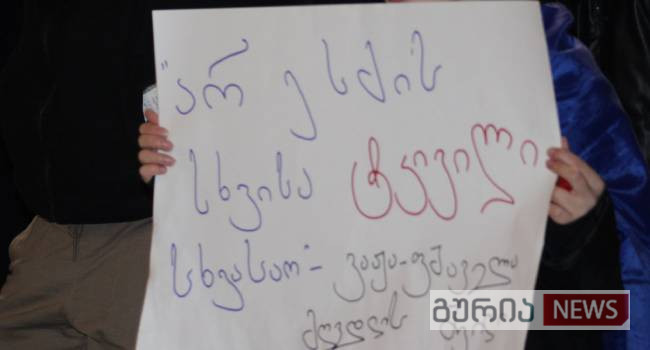 "არ ესმის
სხვისა ტკივილი
სხვასაო" - ვაჟა-ფშაველა
გურია NEWS